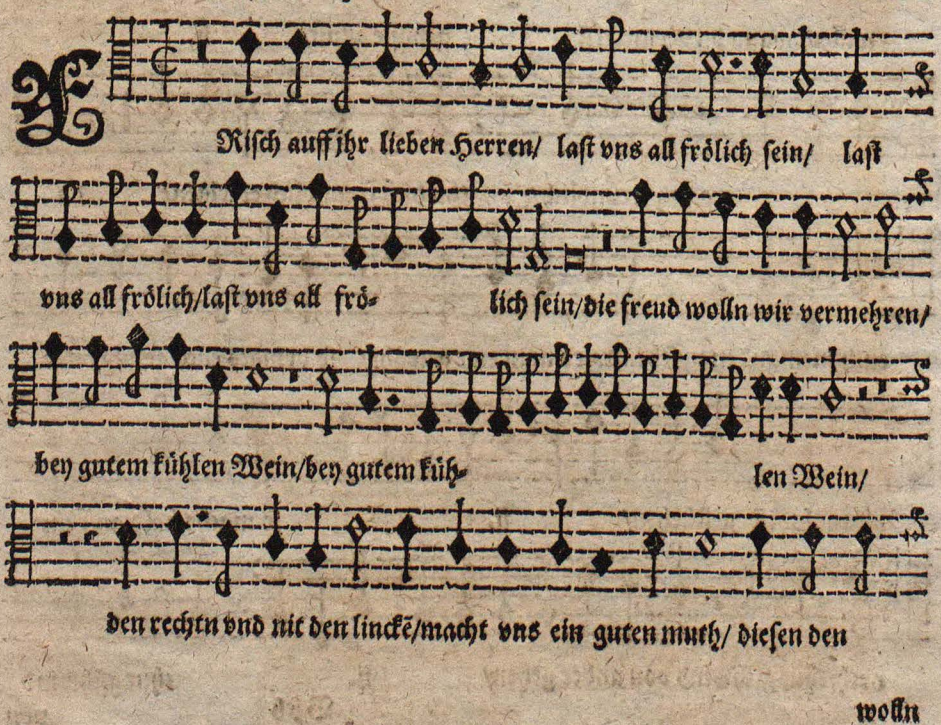 FRisch auff jhr lieben Herren/ last vns all frölich sein/ last
vns all frölich/last vns all frö- lich sein/die freud wolln wir vermehren/
bey gutem kühlen Wein/bey gutem küh- len Wein/
den rechtn vnd nit den linckẽ/macht vns ein guten muth/ diesen den
wolln